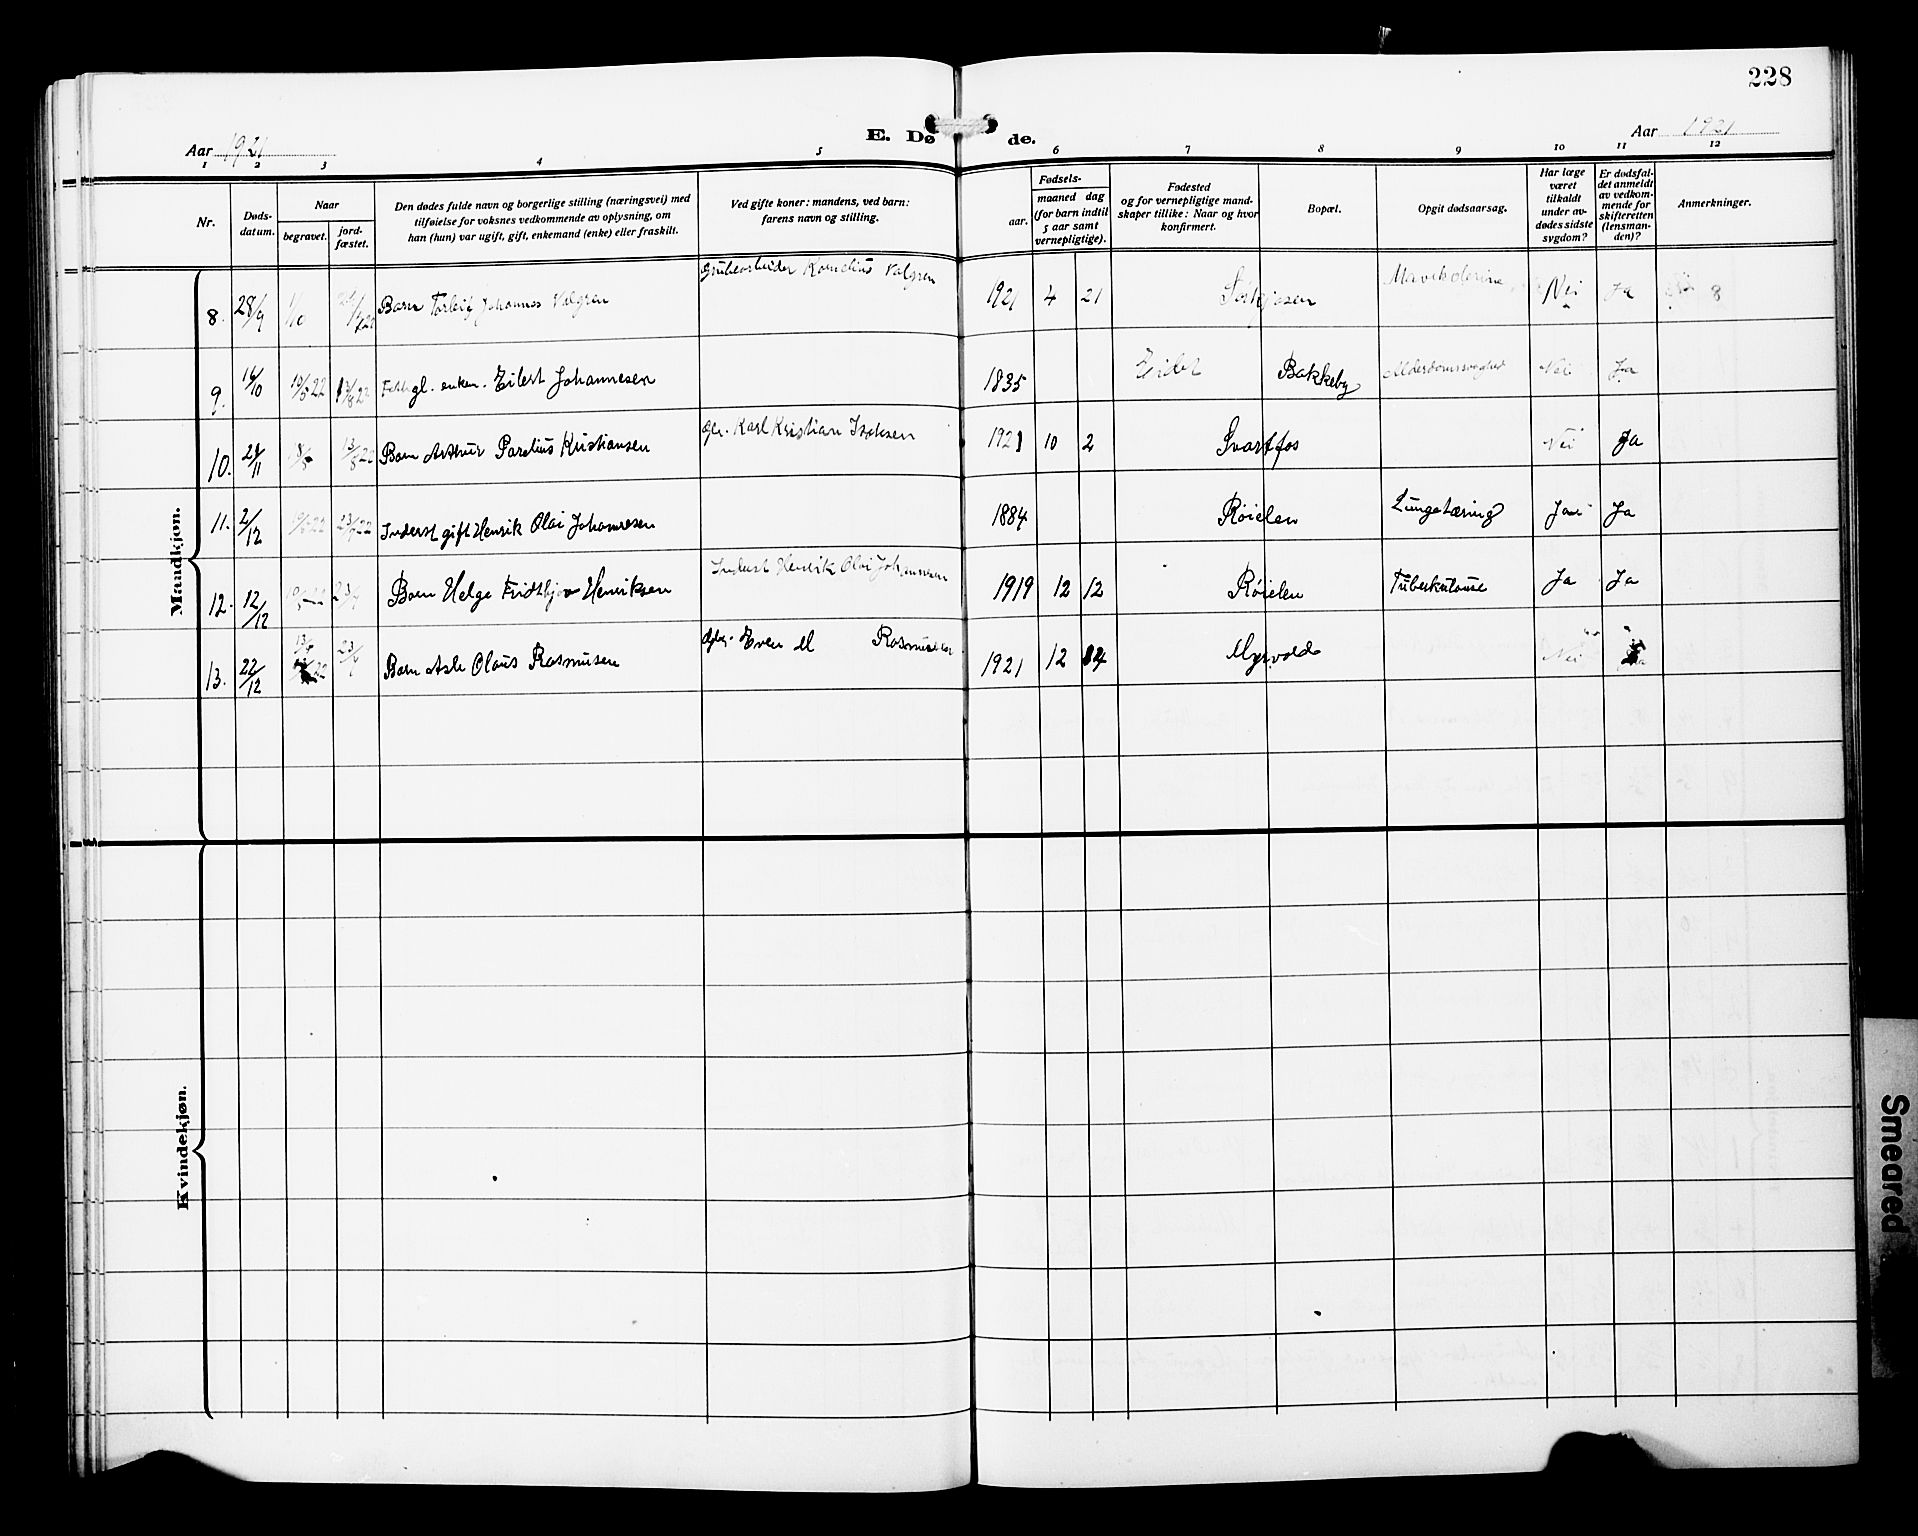 228
Aar 1921
E. Døde.
Aar 1921
1 2 3 4 5 6 7 8 9 10 11 12
Nr.
Døds-
datum.
Naar
begravet.
jord-
fæstet.
Den dødes fulde navn og borgerlige stilling (næringsvei) med
tilføielse for voksnes vedkommende av oplysning, om
han (hun) var ugift, gift, enkemand (enke) eller fraskilt.
Ved gifte koner: mandens, ved barn:
farens navn og stilling.
Fødsels-
aar.
maaned dag
(for barn indtil
5 aar samt
vernepligtige).
Fødested
og for vernepligtige mand-
skaper tillike: Naar og hvor
konfirmert.
Bopæl.
Opgit dødsaarsag.
Har læge
været
tilkaldt
under av-
dødes sidste
sygdom?
Er dødsfal-
det anmeldt
av vedkom-
mende for
skifteretten
(lensman-
den)?
Anmerkninger.
Mandkjøn.
8. 28/9 1/10 Barn Torleif Johannes Valgren Grubearbeider Kornelius Valgren 1921 4 21 Nei Ja 8
9. 16/10 13/8 22 enkem. Eilert Johannesen 1835 Eidet Bakkeby Alderdomssvaghed Nei Ja
10. 13/8 22 Barn Arthur Parelius Kristiansen Karl Kristian Isaksen 1921 10 2 Svartfos Nei Ja
11. 2/12 Inderst gift Henrik Olai Johannesen 1884 Røielen Lungetæring Ja Ja
12. 12/12 Barn Helge Fridthjov Henriksen Inderst Henrik Olai Johannesen 1919 12 12 Røielen Tuberkulouse Ja Ja
13. 22/12 Barn Asle Olaus Rasmusen Even M Rasmussen 1921 12 Myrvold Nei
Kvindekjøn.
Smeared